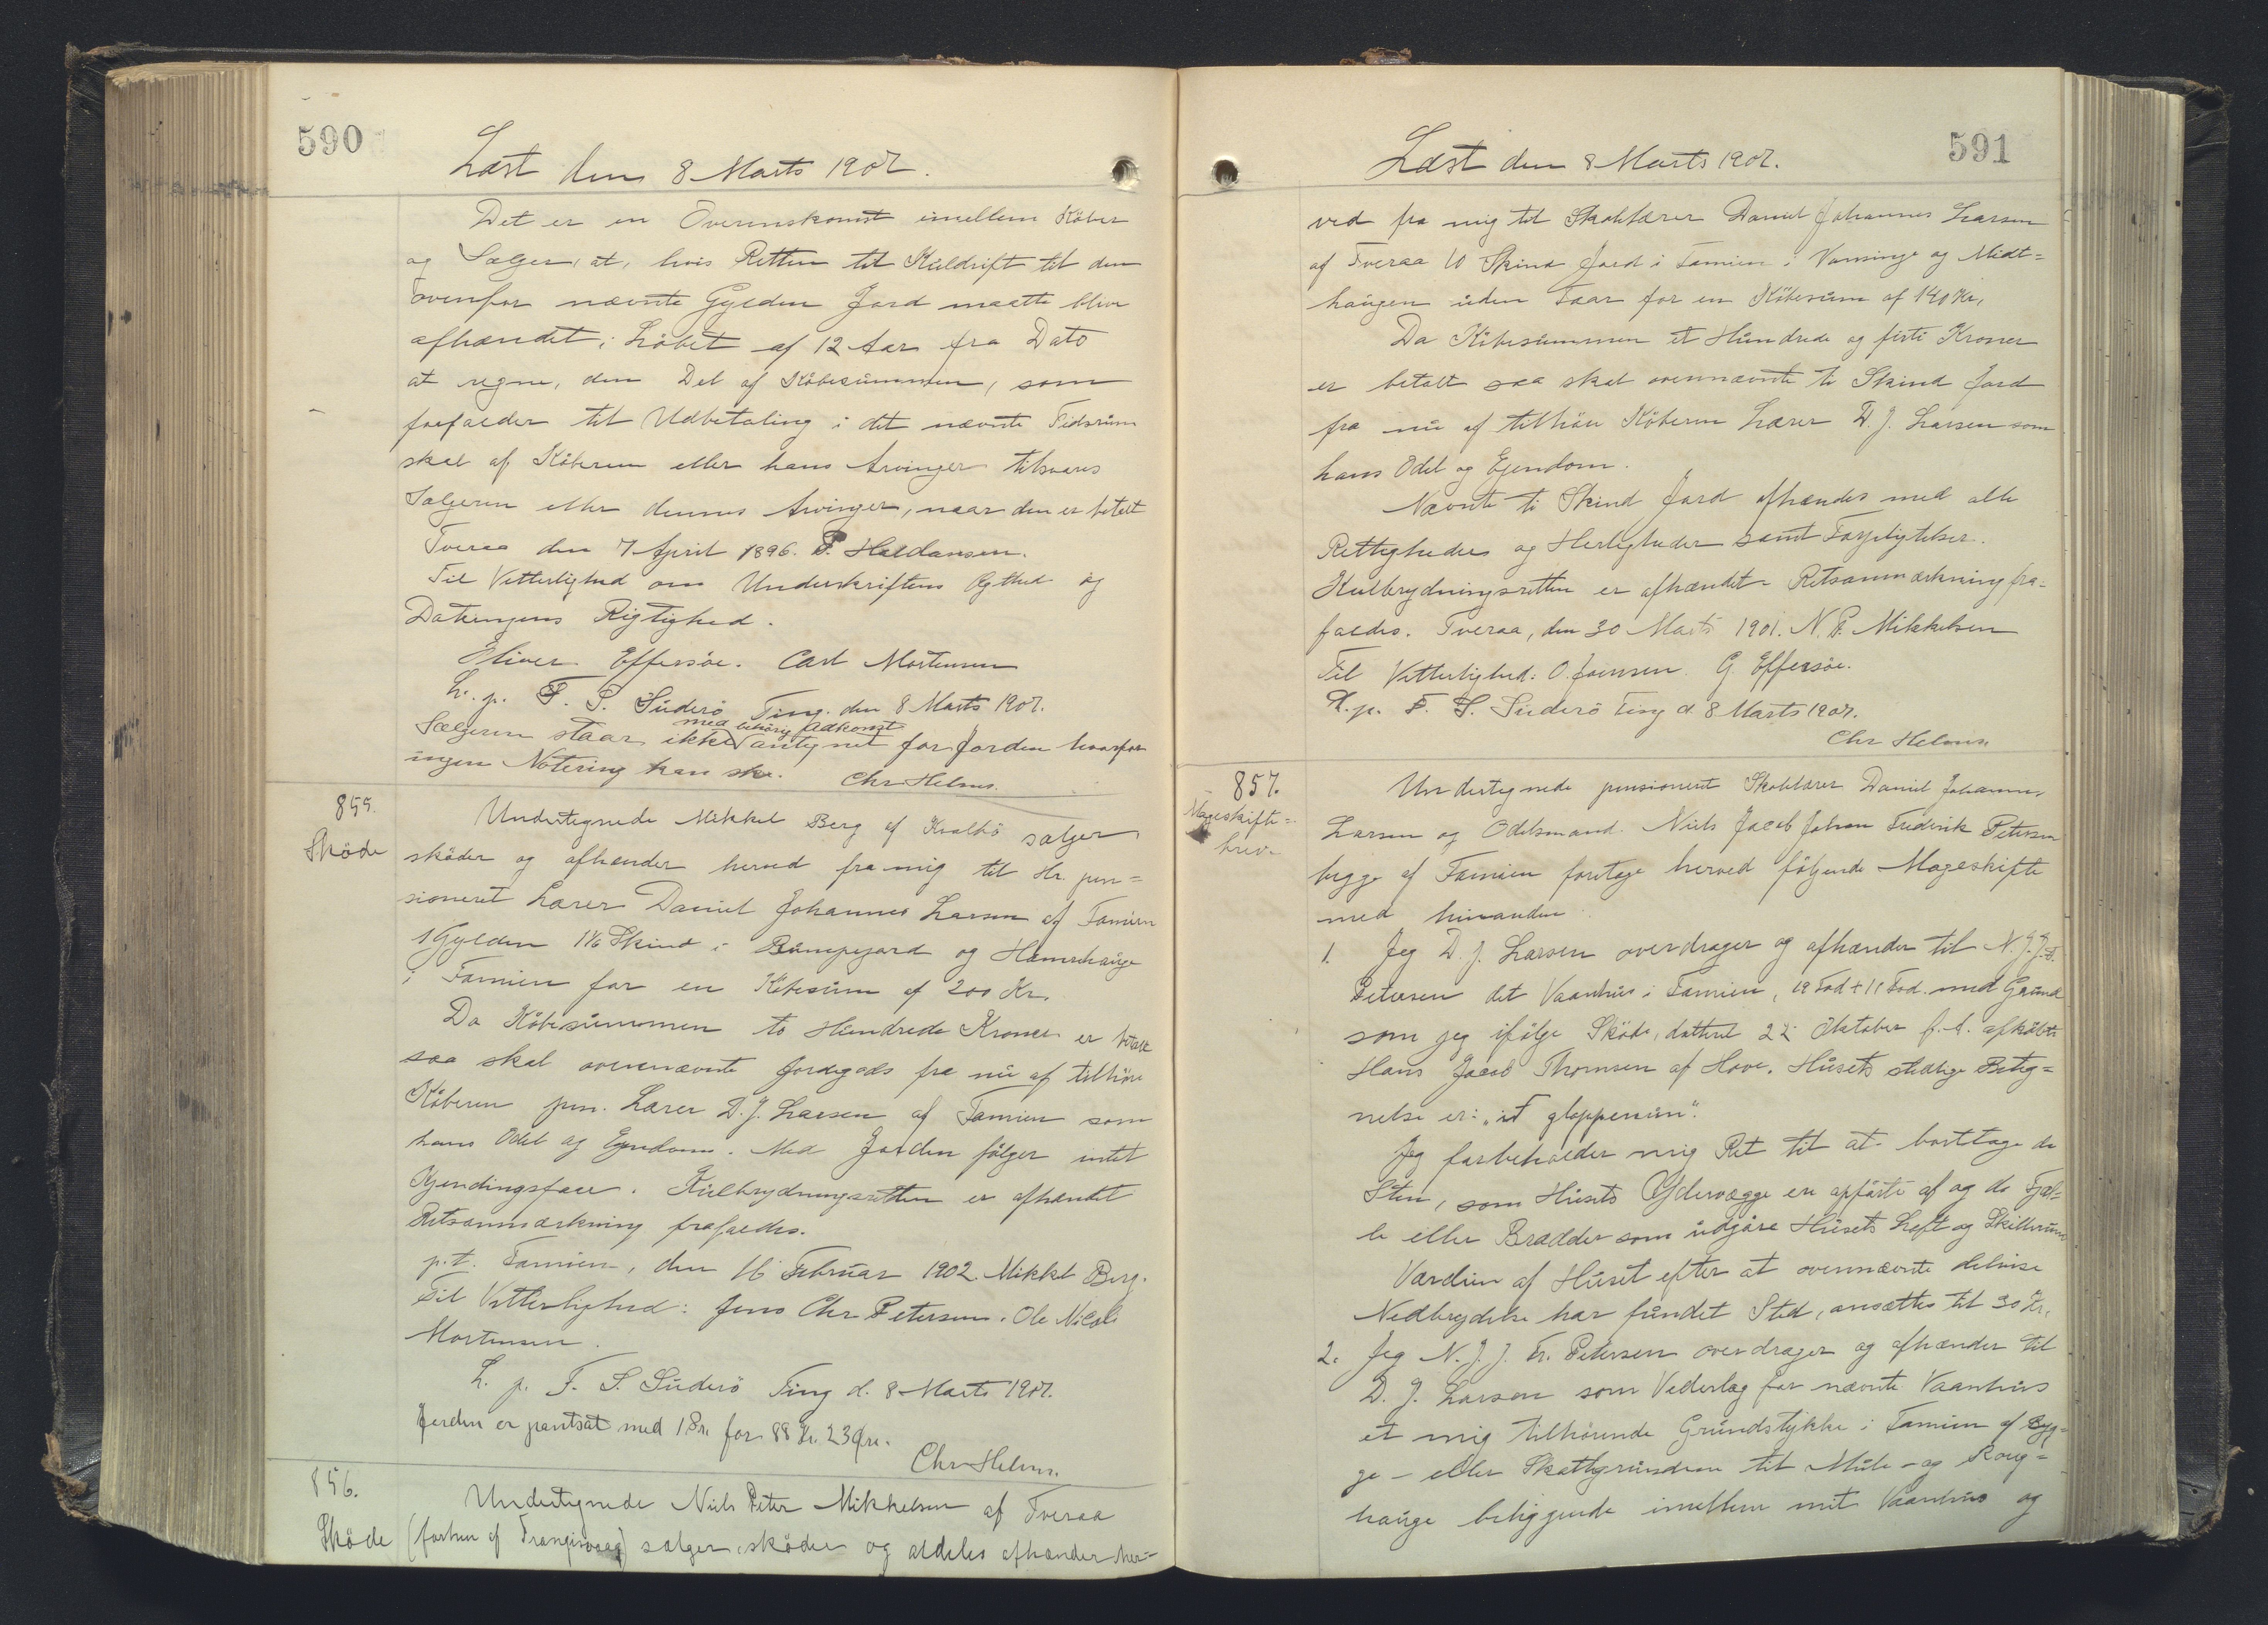 590
Læst den 8 Marts 1907.
Det er en Overenskomst imellem Köber
og Sælger, at, hvis Retten til Kuldrift til den
ovenfor nævnte Gylden Jord maatte blive
afhændet i Löbet af 12 Aar fra Dato
at regne, den Del af Köbesummen, som
forfalder til Udbetaling i det nævnte Tidsrum
skal af Köberen eller hans Arvinger tilsvares
Sælgeren eller dennes Arvinger, naar den er betalt
Tveraa den 7 April 1896. P. Haldansen.
Til Vitterlighed om Underskriftens Ægthed og
Dateringens Rigtighed.
Oliver Effersöe. Carl Mortensen
L. p. F. S. Suderö Ting. den 8 Marts 1907.
med behörig Adkomst
Sælgeren staar ikke antegnet for Jorden hvorfor
ingen Notering kan ske. Chr Helms.
855.
Sköde
Undertegnede Mikkel Berg af Kvalbö sælger
sköder og afhænder herved fra mig til Hr. pen=
sioneret Lærer Daniel Johannes Larsen af Famien
1 Gylden 1 1/6 Skind i Rumpegard og Hamrehauge
i Famien for en Köbesum af 200 Kr.
Da Köbesummen to Hundrede Kroner er betalt
saa skal ovennævnte Jordegods fra nu af tilhöre
Köberen pen. Lærer D. J. Larsen af Famien som
hans Odel og Ejendom. Med Jorden fölger intet
Kjendingsfaar. Kulbrydningsretten er afhændet
Retsanmærkning frafaldes.
p.t. Famien, den 16 Februar 1902. Mikkel Berg.
Til Vitterlighed: Jens Chr Petersen. Ole Nicolai
Mortensen.
L. p. F. S. Suderö Ting d. 8 Marts 1907.
Jorden er pantsat med 1 Pr. for 88 Kr. 23 Öre.
Chr Helms.
856.
Sköde
Undertegnede Niels Peter Mikkelsen af Tveraa
(forhen af Trangisvaag) sælger, sköder og aldeles afhænder her=
591
Læst den 8 Marts 1907.
ved fra mig til Skolelærer Daniel Johannes Larsen
af Tveraa 10 Skind Jord i Famien i Vansinge og Midt=
haugen uden Faar for en Köbesum af 140 Kr.
Da Köbesummen et Hundrede og firti Kroner
er betalt saa skal ovennævnte ti Skind Jord
fra nu af tilhöre Köberen Lærer D. J. Larsen som
hans Odel og Ejendom.
Nævnte ti Skind Jord afhændes med alle
Rettigheder og Herligheder samt Forpligtelser.
Kulbrydningsretten er afhændet. Retsanmærkning fra=
faldes. Tveraa, den 30 Marts 1901. N. P. Mikkelsen
Til Vitterlighed: O. Joensen G. Effersöe.
L. p. F. S. Suderö Ting d. 8 Marts 1907.
Chr Helms.
857.
Mageskifte=
brev
Undertegnede pensioneret Skolelærer Daniel Johannes
Larsen og Odelsmand Niels Jacob Johan Frederik Petersen
begge af Famien foretage herved fölgende Mageskifte
med hinanden
1. Jeg D. J. Larsen overdrager og afhænder til N. J. J. F.
Petersen det Vaanhus i Famien, 19 Fod + 11 Fod med Grund
som jeg ifölge Sköde, datteret 22 Oktober f. A. afköbte
Hans Jacob Thomsen af Hove. Husets stedlige Beteg=
nelse er: „it gloppenum".
Jeg forbeholder mig Ret til at borttage de
Sten, som Husets Ydervægge ere opförte af og de Fjæl=
le eller Brædder som udgöre Husets Loft og Skillerum
Værdien af Huset efter at ovennævnte delvise
Nedbrydelse har fundet Sted, ansættes til 30 Kr.
2. Jeg N. J. J. Fr. Petersen overdrager og afhænder til
D. J. Larsen som Vederlag for nævnte Vaanhus
et mig tilhörende Grundstykke i Famien af Byg=
ge- eller Skattegrunden til Mule- og Roug=
hauge beliggende imellem mit Vaanhus og